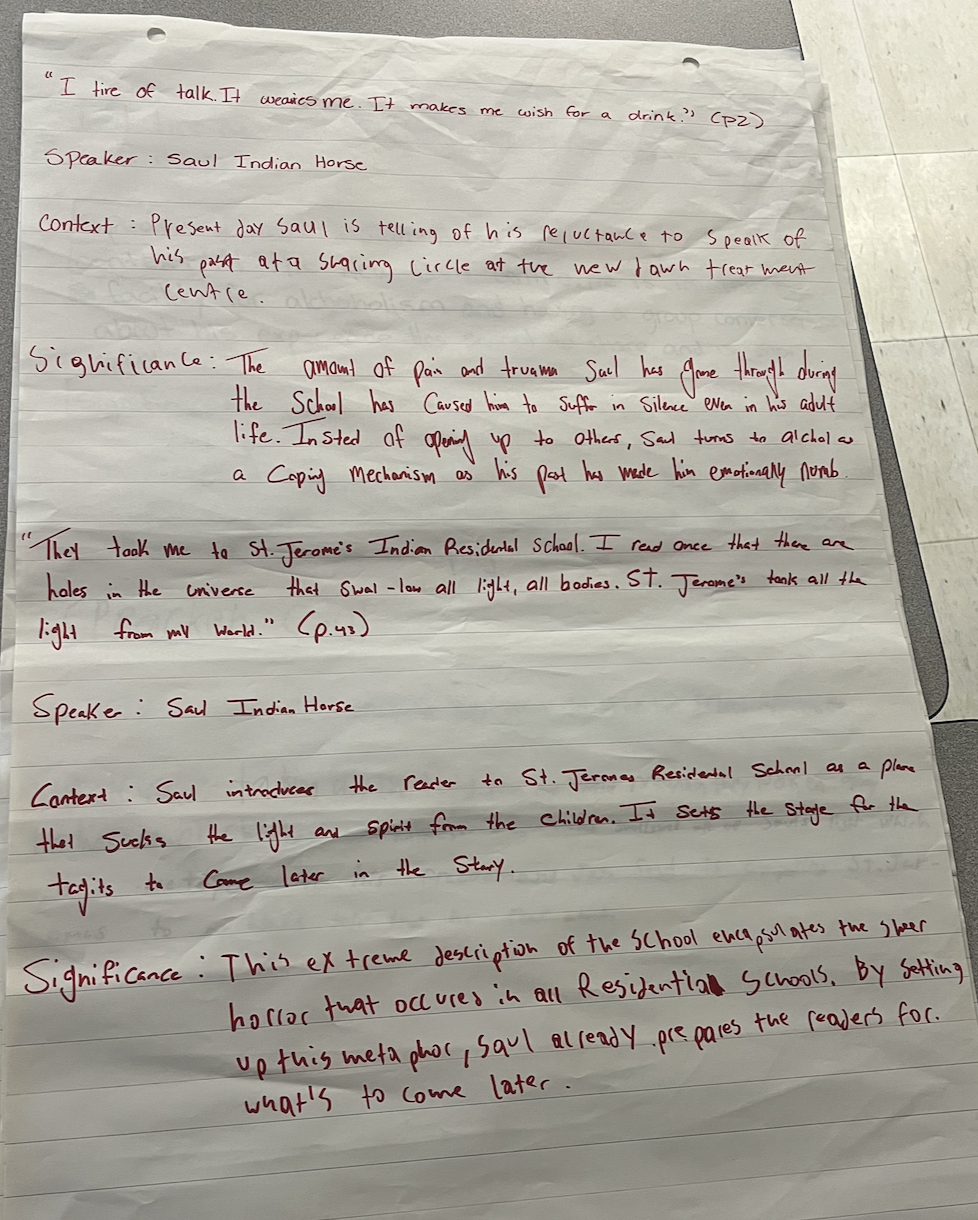 "I tire of talk. It wearies me. It makes me wish for a drink." (p2)
Speaker : Saul Indian Horse
Context : Present day Saul is telling of his reluctance to speak of
his past at a sharing circle at the new dawn treatment
centre.
Significance : The amount of pain and truama Saul has gone through during
the School has caused him to suffer in silence even in his adult
life. Insted of opening up to others, Saul turns to alchol as
a Coping Mechanism as his past has made him emotionally numb.
"They took me to St. Jerome's Indian Residental School. I read once that there are
holes in the universe that swal-low all light, all bodies. St. Jerome's took all the
light from my world." (p.43)
Speaker : Saul Indian Horse
Context : Saul introduces the reader to St. Jeromes Residental School as a place
that Sucks the light and spirit from the children. It sets the stage for the
tagits to come later in the Story.
Significance : This extreme description of the school encapsulates the sheer
horror that occures in all Residential Schools. By setting
up this metaphor, Saul already prepares the readers for.
what's to come later.